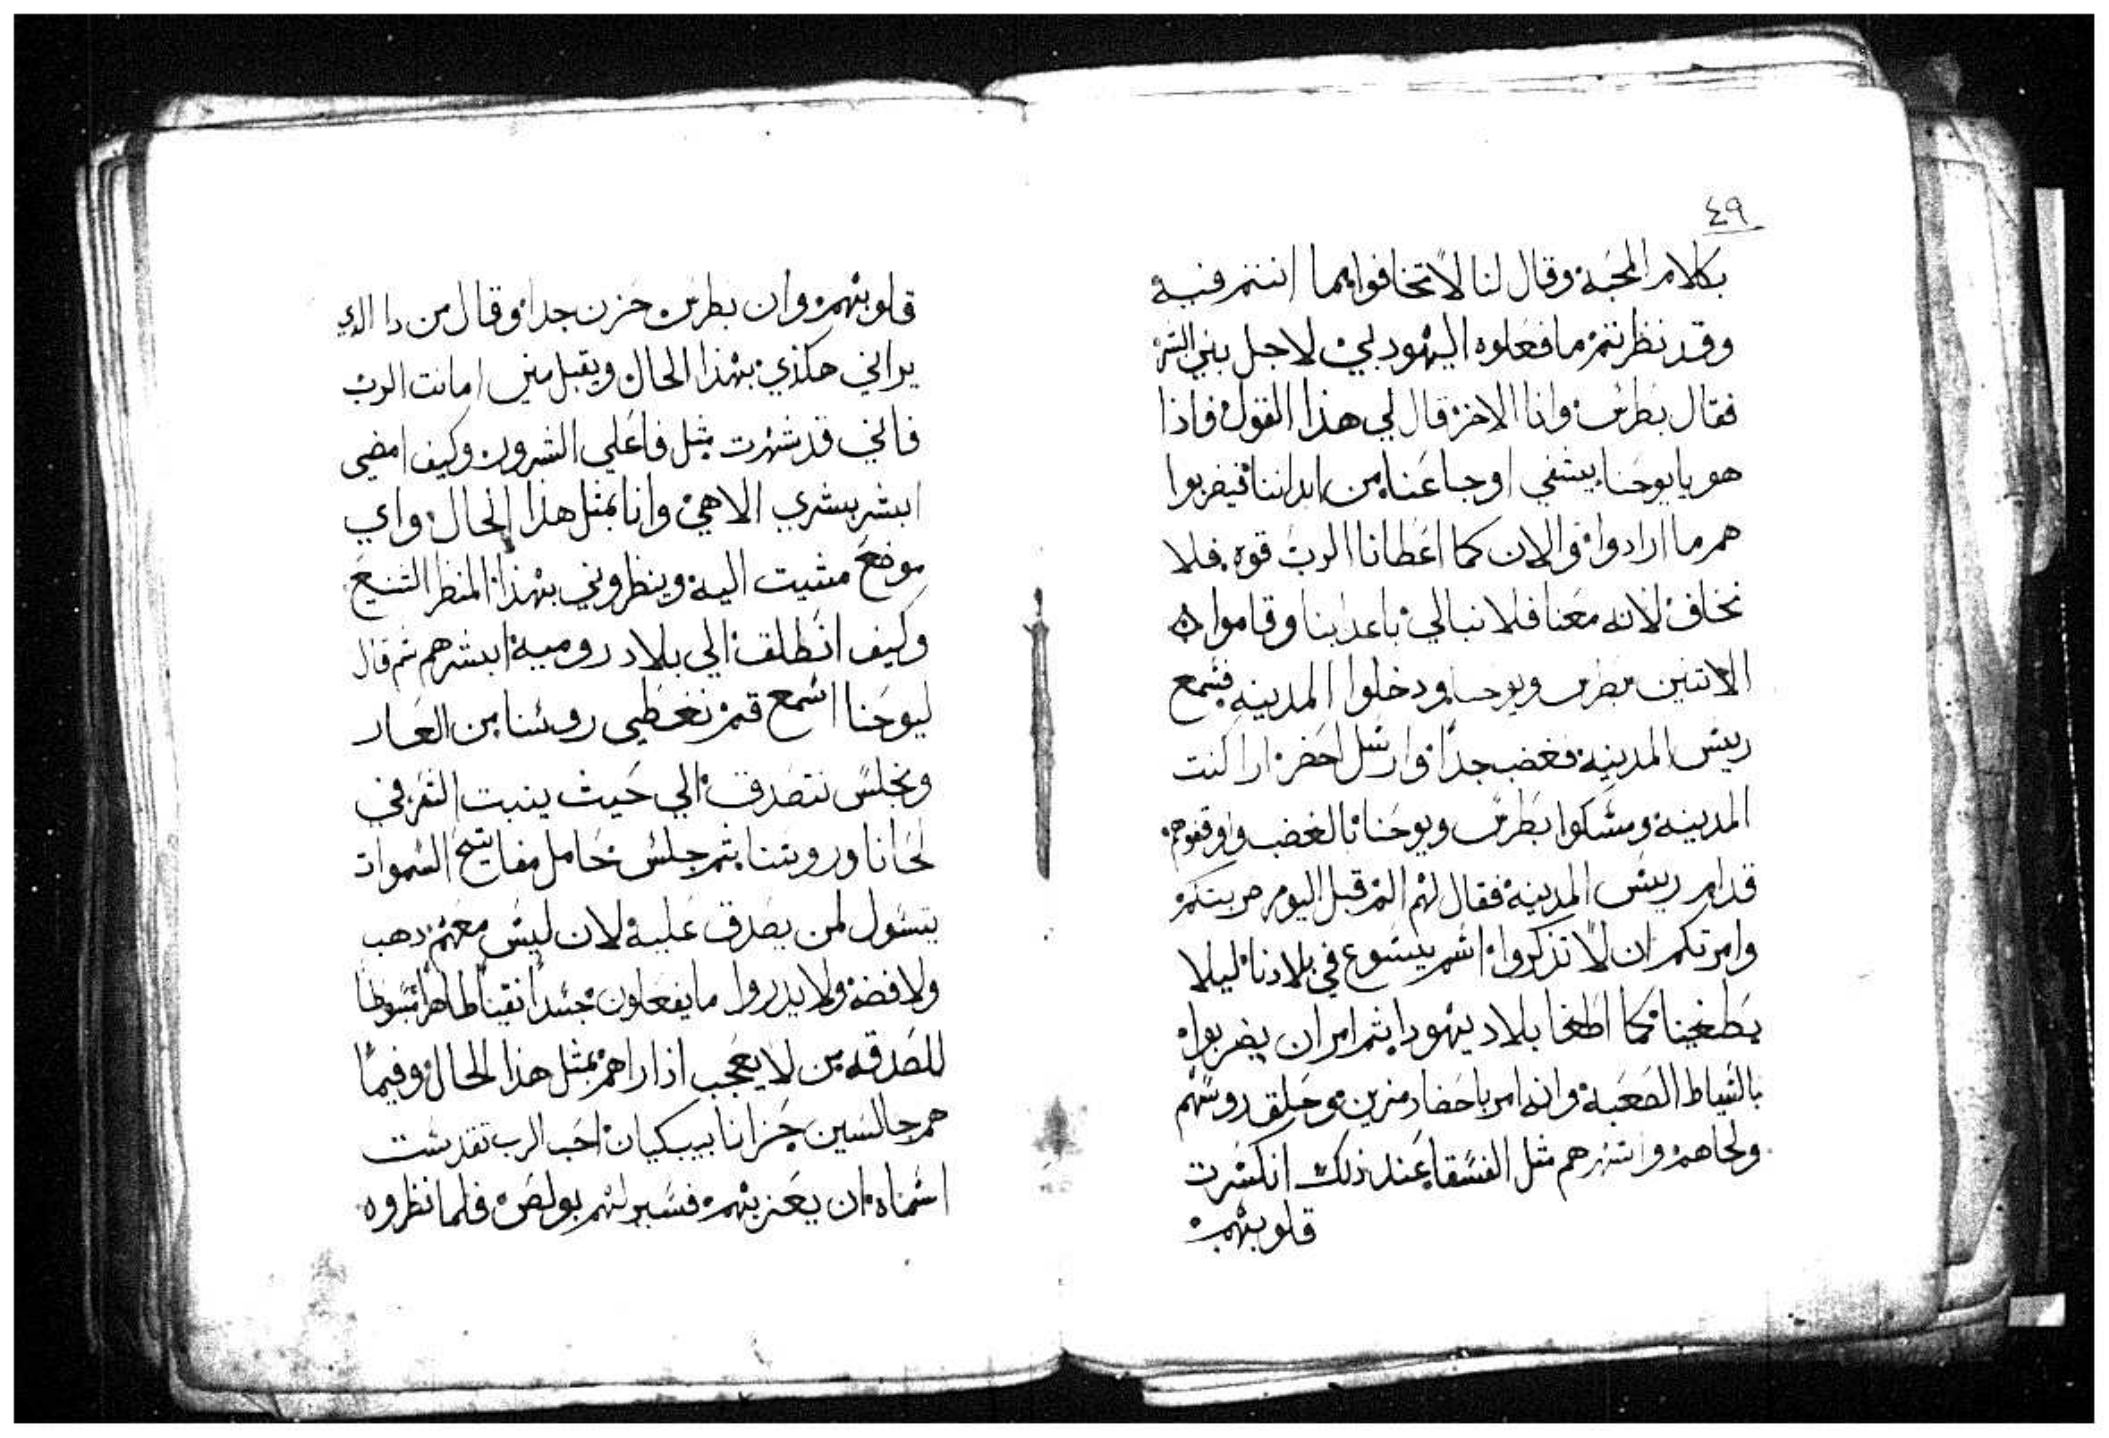 ٤٩
بكلام المحبة وقال لنا لا تخافوا مما انتم فيه
وقد نظرتم ما فعلوه اليهود لي لاجل بني البشر
فقال بطرس وانا الاخر قال لي هذا القول واذا
هو يا يوحنا يشفي اوجاعنا من ابداننا فيضربوا
هم ما ارادوا والان كما اعطانا الرب قوه فلا
نخاف لانه معنا فلا نبالي باعدابنا وقاموا
الاتنين بطرس ويوحنا ودخلوا المدينه فسمع
رييس المدينه فغضب جدا وارسل احضر اراكنت
المدينه ومسكوا بطرس ويوحنا بالغضب واوقفوهم
قدام رييس المدينه فقال لهم الم قبل اليوم ضربتكم
وامرتكم ان لا تذكروا اسم يسوع في بلادنا ليلا
يطغينا كما اطغا بلاد يهودا ثم امر ان يضربوا
بالسياط الصعبه وانه امر باحضار مزين وحلق روسهم
ولحاهم واشهرهم مثل الفسقا عند ذلك انكسرت
قلوبهم
قلوبهم وان بطرس حزن جدا وقال من دا الدي
يراني هكذي بهذا الحال ويقبل مني امانت الرب
فانني قد شهرت مثل فاعلي الشرور وكيف امضي
ابشر ببشري الاهي وانا بمثل هذا الحال واي
موضع مشيت اليه وينظروني بهذا المنظر الشنيع
وكيف انطلق الي بلاد روميه ابشرهم ثم قال
ليوحنا اسمع قم نغطي روسنا من العار
ونجلس نتصدق الي حيث ينبت الشعر في
لحانا وروسنا ثم جلس حامل مفاتيح السموات
يتسول لمن يصدق عليه لان ليس معهم دهب
ولا فضه ولا يدروا ما يفعلون جسدا نقيا طاهرا
للصدقه من لا يعجب اذا راهم بمثل هذا الحال وفيما
هم جالسين حزانا يبكيان احب الرب تقدست
اسماه ان يعزيهم فسير لهم بولص فلما نظروه